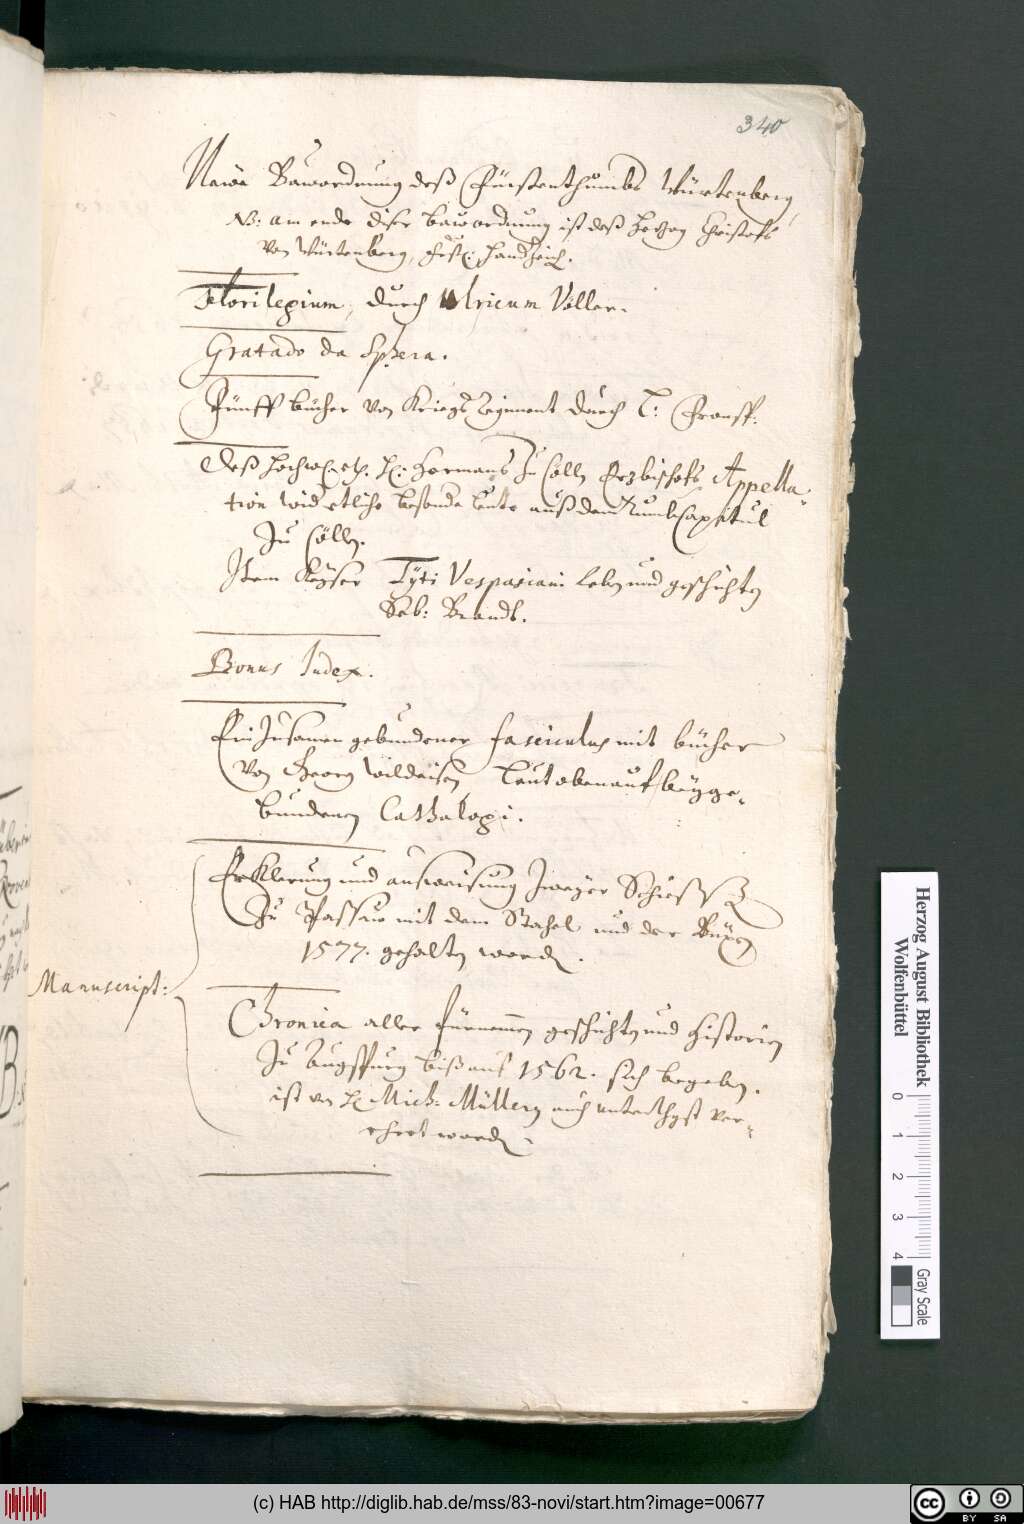 340
Nawe Bawordnung deß Fürstenthumbs Würtenberg,
NB: am ende diser bawordnung ist deß Herzog Christofs
von Würtenberg,
Florilegium, durch Ulricum Völler.
Gratado da Sphera.
Fünff bücher von Kriegs Regiment durch L: Fronsp:
Deß Hochw. H: Hermans zu Cölln Erzbischofs Appella-
tion wid etliche besonde leute auß dem Thumb Capitul
zu Cölln.
Item Keyser Tyti Vespasiani leben und geschichten
Seb: Brandt.
Bonus Index.
Ein zusamen gebundener fasciculus mit bücher
von Georg Willeri laut obenauf beyge-
bundenen Cathalogi.
Erklerung und ausweisung zweyer Schiessz
zu Passaw mit dem Stahel und der Büxen
1577. gehalten word.
Manuscript:
Chronica aller fürnemen geschichten und historien
zu Augspurg biß auf 1562. sich begeben.
ist von H Mich: Müllern auch underthgst ver-
ehret word.
Herzog August Bibliothek
Wolfenbüttel
0 1 2 3 4
Gray Scale
(c) HAB http://diglib.hab.de/mss/83-novi/start.htm?image=00677
cc BY SA